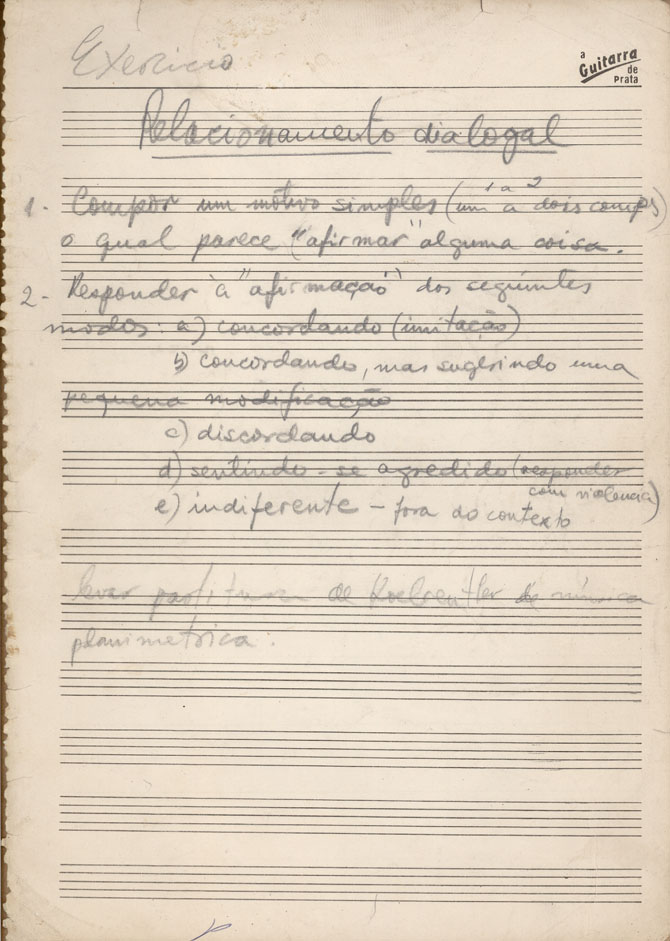 Exercício
a
Guitarra
de
Prata
Relacionamento dialogal
1 a 2
1- Compôr um motivo simples (um a dois comps)
o qual parece "afirmar" alguma coisa.
2- Responder à "afirmação" dos seguintes
modos: a) concordando (imitação)
b) concordando, mas sugerindo uma
pequena modificação
c) discordando
d) sentindo-se agredido (responder
com violencia)
e) indiferente - fora do contexto
levar partitura de Koellreutter de música
planimetrica.